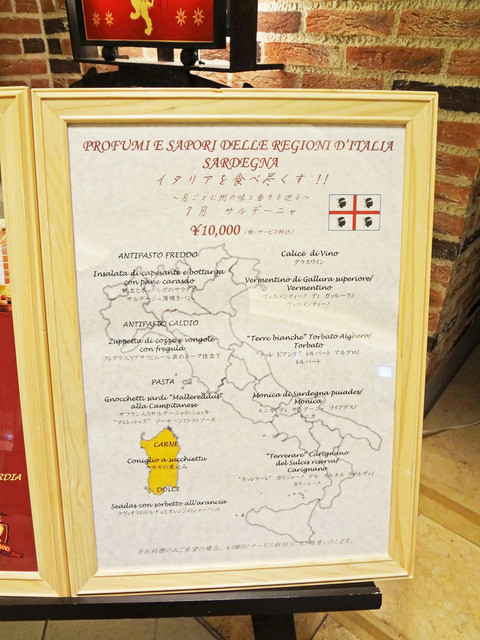 PROFUMI E SAPORI DELLE REGIONI D'ITALIA
SARDEGNA
イタリアを食べ尽くす !!
～月ごとに州の味と香りを巡る～
7月 サルデーニャ
¥10,000 (税・サービス料込)
ANTIPASTO FREDDO
Insalata di capesante e bottarga
con pane carasado
帆立とボッタルガのサラダ
サルデーニャ薄焼きパン
ANTIPASTO CALDIO
Zuppetta di cozze e vongole
con fregula
フレグラ入りアサリとムール貝のスープ仕立て
PASTA
Gnocchetti sardi "Mallereddaus"
alla Campitanese
サフラン入りサルデーニャのニョッキ
"マレレッドゥス" ソーセージとトマトソース
CARNE
Coniglio a succhiettu
ウサギの煮込み
DOLCE
Seadas con sorbetto all'arancia
ラヴィオリのドルチェとオレンジのシャーベット
Calice di Vino
グラスワイン
Vermentino di Gallura superiore/
Vermentino
ヴェルメンティーノ ディ ガッルーラ/
ヴェルメンティーノ
"Terre bianche" Torbato Alghero/
Torbato
"テッレ ビアンケ" トルバート アルゲロ/
トルバート
Monica di Sardegna puiades/
Monica
モニカ ディ サルデーニャ プイアデス/
モニカ
"Terrerare" Carignano
del Sulcis riserva/
Carignano
"テッレラーレ" カリニャーノ デル スルチス リゼルヴァ/
カリニャーノ
RDIA
ANO